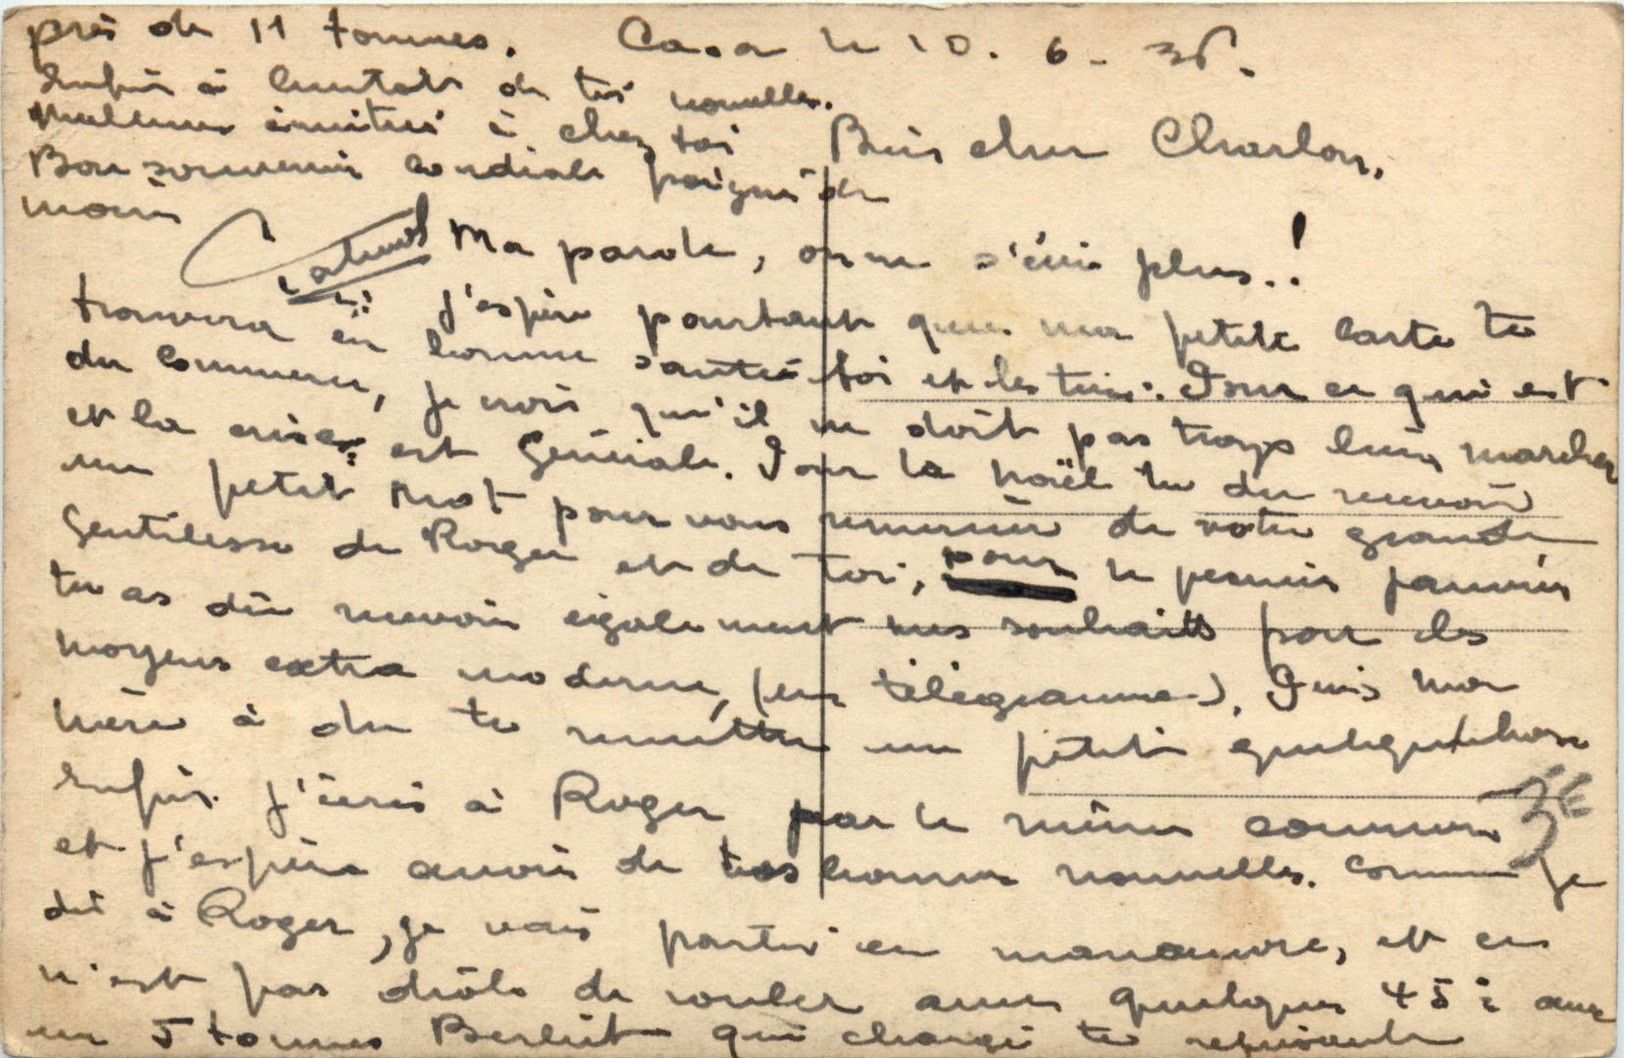 Casa le 10. 6 - 35.
Bien cher Charlon,
Ma parole, on ne s'écrit plus..!
J'espère pourtant que ma petite carte te
trouvera en bonne santé toi et les tiens. Pour ce qui est
du commerce, je crois qu'il ne doit pas trop bien marcher
et la crise est Géniale. Pour la Noël tu du recevoir
un petit mot pour vous remercier de votre grande
Gentilesse de Roger et de toi, pour le permis
tu as dû recevoir également mes souhaits par des
moyens extra moderne, (un télégramme). Puis ma
mère à du te remettre un petit quelque chose
Enfin j'écris à Roger par le même courrier
et j'espère avoir de tes bonnes nouvelles. Comme je
dit à Roger, je vais partir en manoeuvre, et ce
n'est pas drôle de rouler avec quelques 45° avec
un 5 tonnes Berliet qui chargé te
près de 11 tonnes.
Enfin à bientôt de tes nouvelles.
Meilleures amitiés à chez toi
Bon souvenir cordiale poignée de
main
3 €